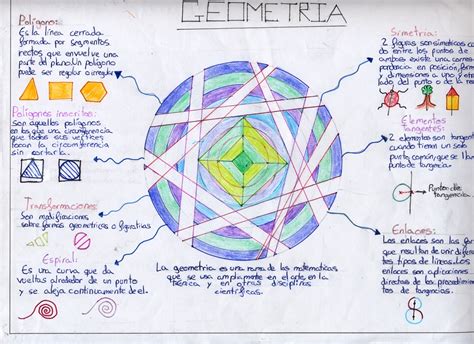 GEOMETRIA
Polígono:
Es la línea cerrada
formada por segmentos
rectos que envuelve una
parte del plano. Un polígono
puede ser regular o irregular
Polígonos inscritos:
son aquellos polígonos
en los que una circunferencia
que todos sus vertices
tocan la circonferencia
sin cortarla.
Transformaciones:
Son modificaciones
sobre formas geometricas o figurativas
Espiral:
Es una curva que da
vueltas alrededor de un punto
y se aleja continuamente de el.
La geometria es una rama de las matematicas
que se usa ampliamente en el arte, en la
tecnica y en otras disciplinas
cientificas.
Simetria:
2 figuras son simetricas cuan
do entre los puntos de
ambas existe una corres
pondencia en posición, forma
y dimensiones a uno y otro
lado del punto o de la rec
Elementos
tangentes:
2 elementos son tangentes
cuando tienen un solo
punto común, que se llama
punto de tangencia.
Punto de
tangencia.
Enlaces:
Los enlaces son las for
que resultan de unir diferen
tes tipos de líneas. Los
enlaces son aplicaciones
directas de los procedimien
tos de tangencias.